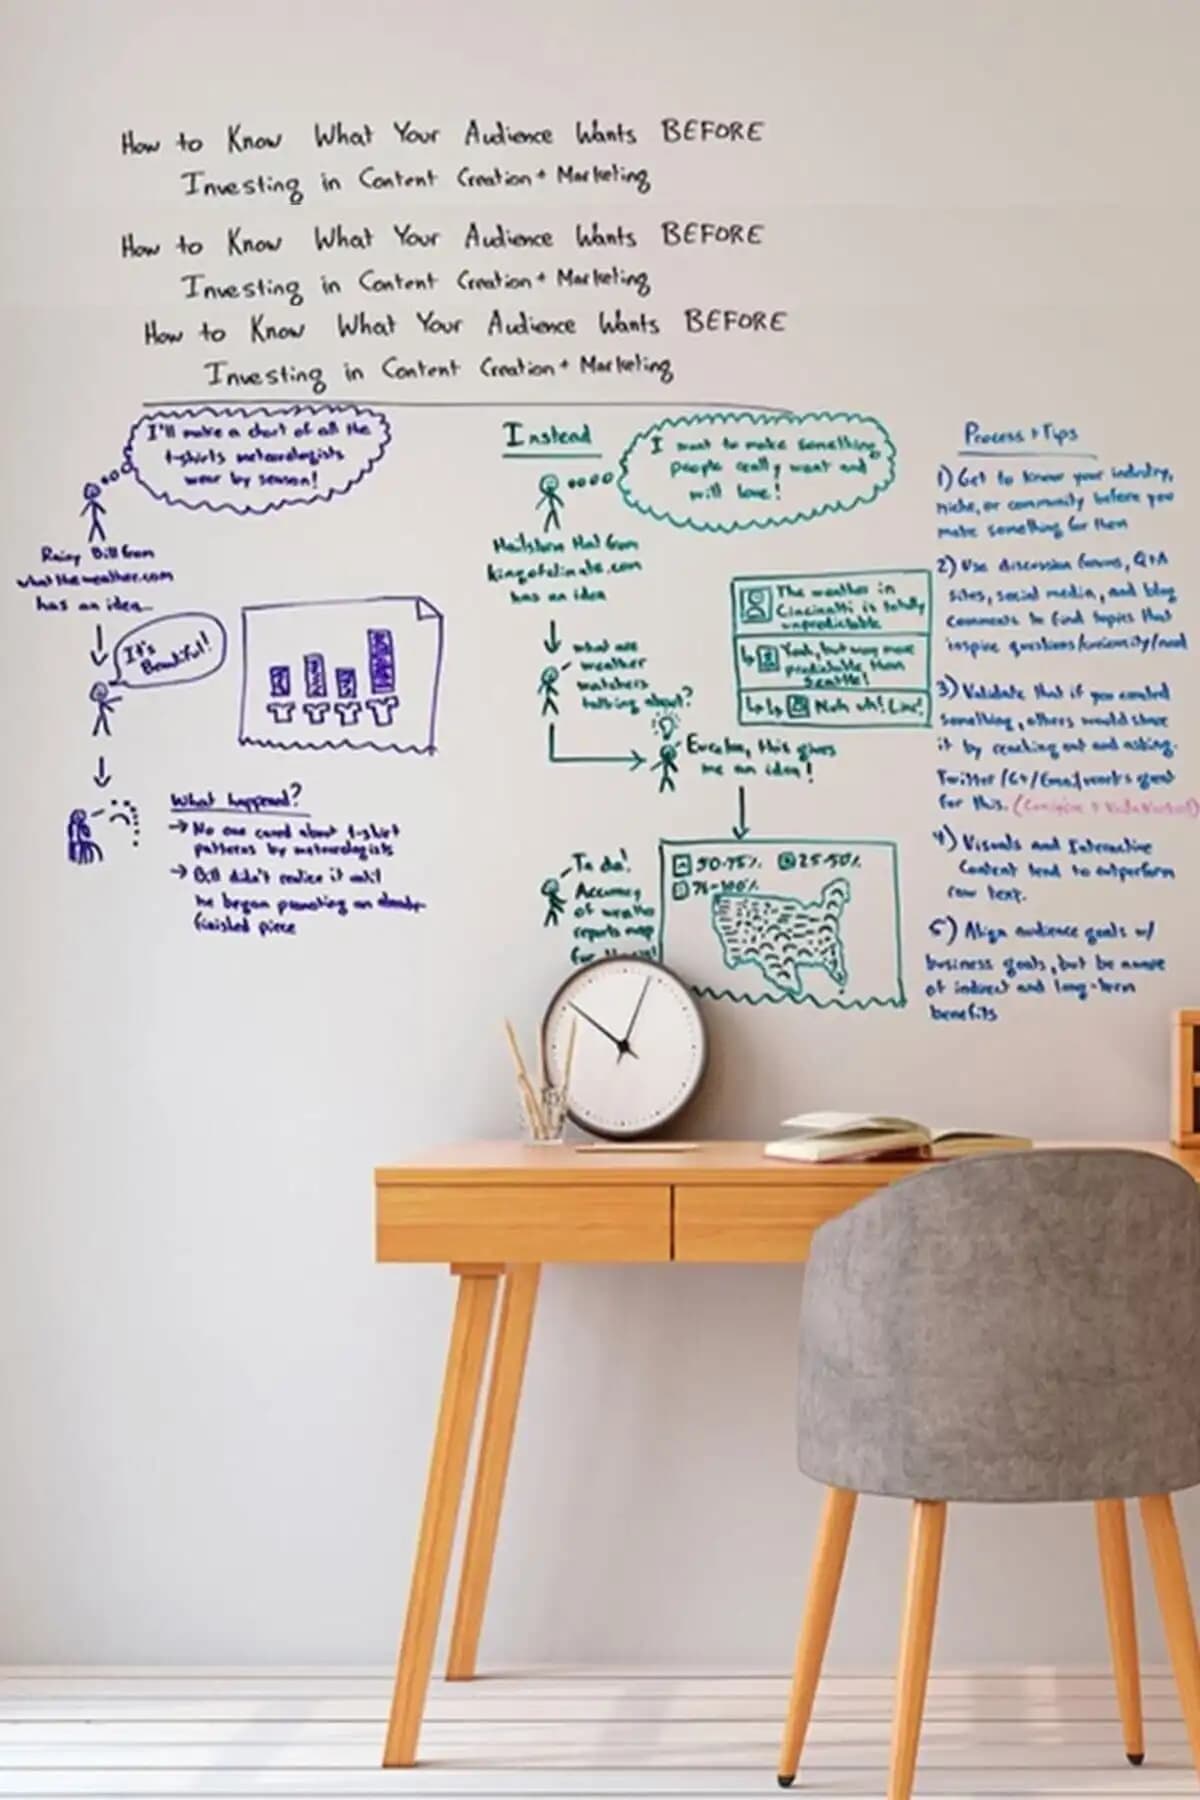 How to Know What Your Audience Wants BEFORE
Investing in Content Creation + Marketing
How to Know What Your Audience Wants BEFORE
Investing in Content Creation + Marketing
How to Know What Your Audience Wants BEFORE
Investing in Content Creation + Marketing
I'll make a chart of all the
t-shirts meteorologists
wear by season!
Rainy Bill from
whattheweather.com
has an idea...
It's
Beautiful!
What happened?
→ No one cared about t-shirt
patterns by meteorologists
→ Bill didn't realize it until
he began promoting an already
finished piece
Instead
I want to make something
people really want and
will love!
Hailstorm Hal from
kingofclimate.com
has an idea
what are
weather
watchers
talking about?
The weather in
Cincinatti is totally
unpredictable
Yeah, but way more
predictable than
Seattle!
Nuh uh! Liar!
Eureka, this gives
me an idea!
Ta da!
Accuracy
of weather
reports map
for the
50-75% 25-50%
76-100%
Process + Tips
1) Get to know your industry,
niche, or community before you
make something for them
2) Use discussion forums, Q+A
sites, social media, and blog
comments to find topics that
inspire questions/curiosity/need
3) Validate that if you created
something, others would share
it by reaching out and asking.
Twitter/G+/Email works great
for this.
4) Visuals and Interactive
Content tend to outperform
raw text.
5) Align audience goals w/
business goals, but be aware
of indirect and long-term
benefits